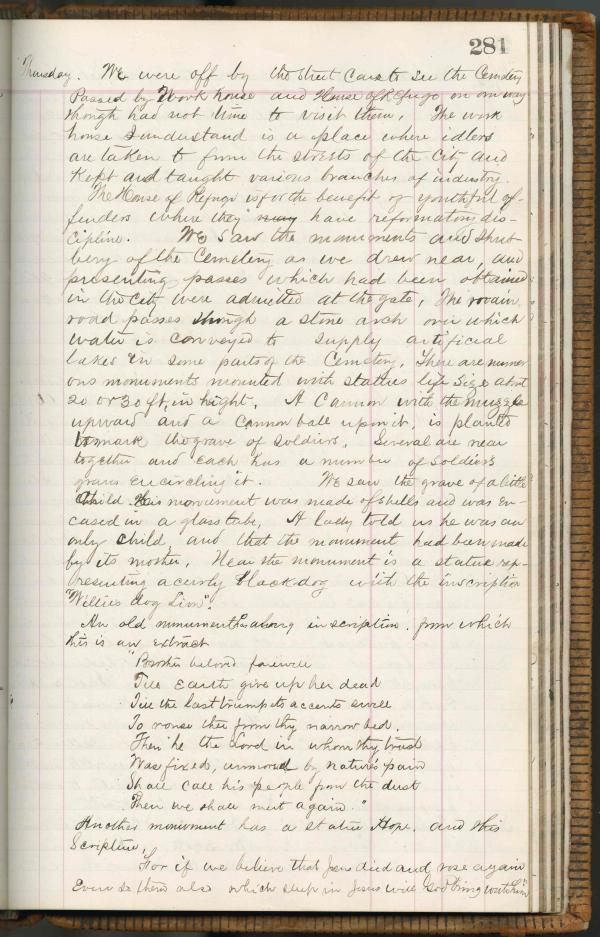 281
Thursday. We were off by the street cars to see the Cemetery
Passed by Work house and House of Refuge on our way
though had not time to visit them. The work
house I understand is a place where idlers
are taken to from the streets of the City and
Kept and taught various branches of industry.
The House of Refuge is for the benefit of youthful of-
fenders where they may have reformatory dis-
cipline. We saw the monuments and shrub
bery of the Cemetery as we drew near, and
presenting passes which had been obtained
in the City were admitted at the gate. The
road passes through a stone arch over which
water is conveyed to supply artificial
lakes in some parts of the Cemetery. There are numer
ous monuments mounted with statues life size about
20 or 30 ft. in hight. A Cannon with the muzzle
upward and a Cannon ball upon it, is planted
to mark the grave of soldiers. Several are near
together and each has a number of soldiers
graves encircling it. We saw the grave of a little
Child. His monument was made of shells and was en-
cased in a glass tube. A lady told us he was an
only child and that the monument had been made
by its mother. Near the monument is a statue rep-
resenting a curly black dog with the inscription
"Willies dog Lion".
An old monument has a long inscription. from which
this is an extract
"Brother beloved farewell
Till Earth give up her dead
Till the last trumpets accents swell
To rouse thee from thy narrow bed.
Then he the Lord in whom thy trust
Was fixed, unmoved by nature's pain
Shall call his people from the dust
Then we shall meet again."
Another monument has a statue Hope. and this
Scripture.
For if we believe that Jesus died and rose again
Even so them also which sleep in Jesus will God bring with him"